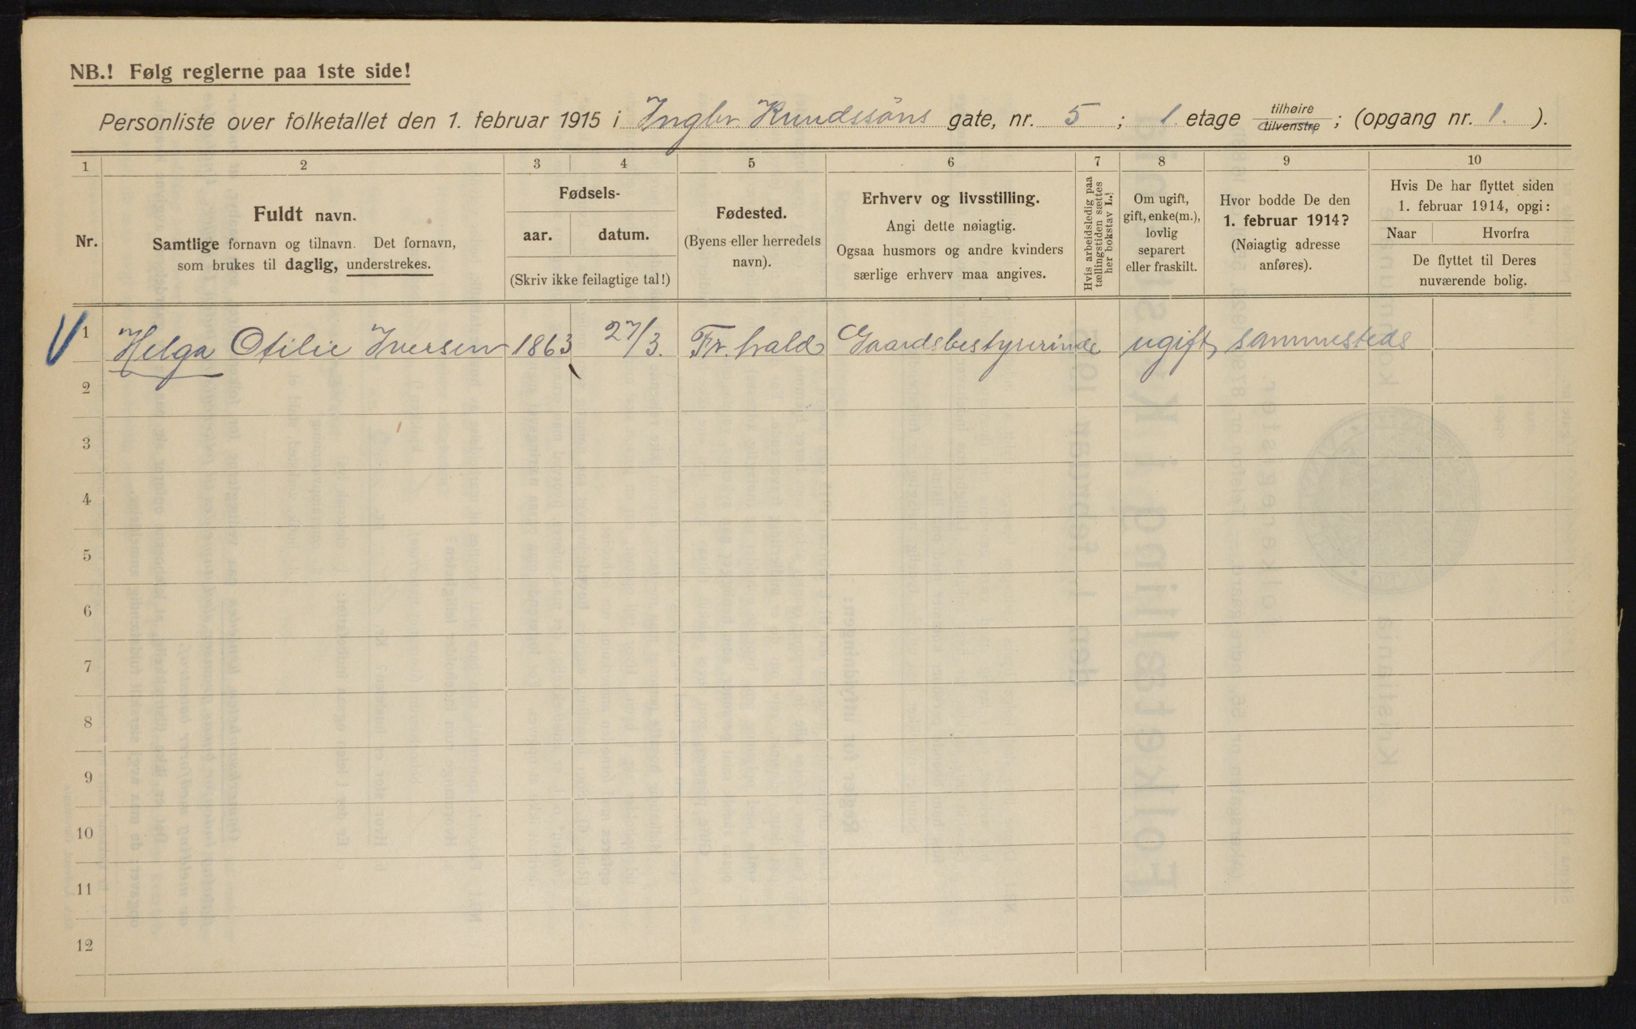 NB.! Følg reglerne paa 1ste side!
Personliste over folketallet den 1. februar 1915 i Ingbr. Knudssöns gate, nr. 5 ; 1 etage tilhøire tilvenstre ; (opgang nr. 1. ).
1 2 3 4 5 6 7 8 9 10
Nr.
Fuldt navn.
Samtlige fornavn og tilnavn. Det fornavn,
som brukes til daglig, understrekes.
Fødsels-
aar. datum.
(Skriv ikke feilagtige tal!)
Fødested.
(Byens eller herredets
navn).
Erhverv og livsstilling.
Angi dette nøiagtig.
Ogsaa husmors og andre kvinders
særlige erhverv maa angives.
Hvis arbeidsledig paa
tællingstiden sættes
her bokstav L.!
Om ugift,
gift, enke(m.),
lovlig
separert
eller fraskilt.
Hvor bodde De den
1. februar 1914?
(Nøiagtig adresse
anføres).
Hvis De har flyttet siden
1. februar 1914, opgi:
Naar Hvorfra
De flyttet til Deres
nuværende bolig.
1 Helga Otilie Iversen 1863 27/3. Fr.hald Gaardsbestyrerinde ugift sammesteds
2
3
4
5
6
7
8
9
10
11
12